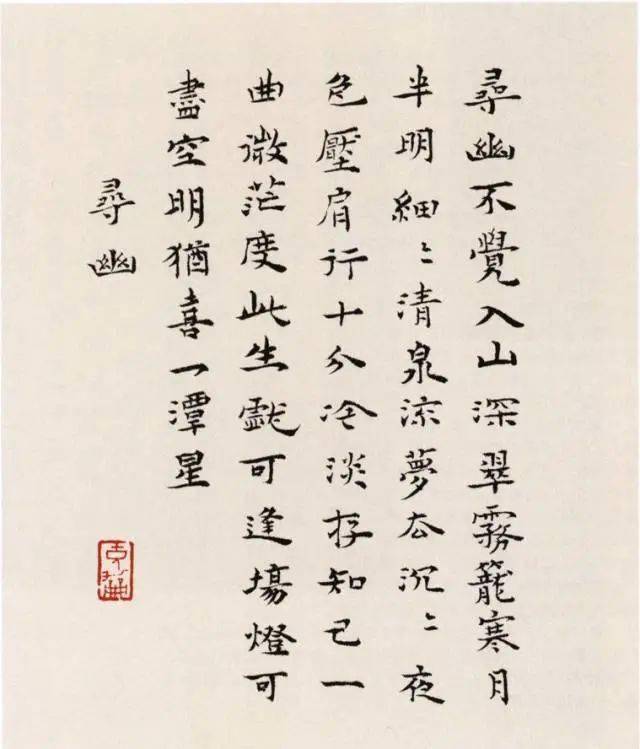 尋幽不覺入山深翠霧籠寒月
半明細〻清泉流夢去沉〻夜
色壓肩行十分冷淡存知己一
曲微茫度此生戲可逢場燈可
盡空明猶喜一潭星
尋幽